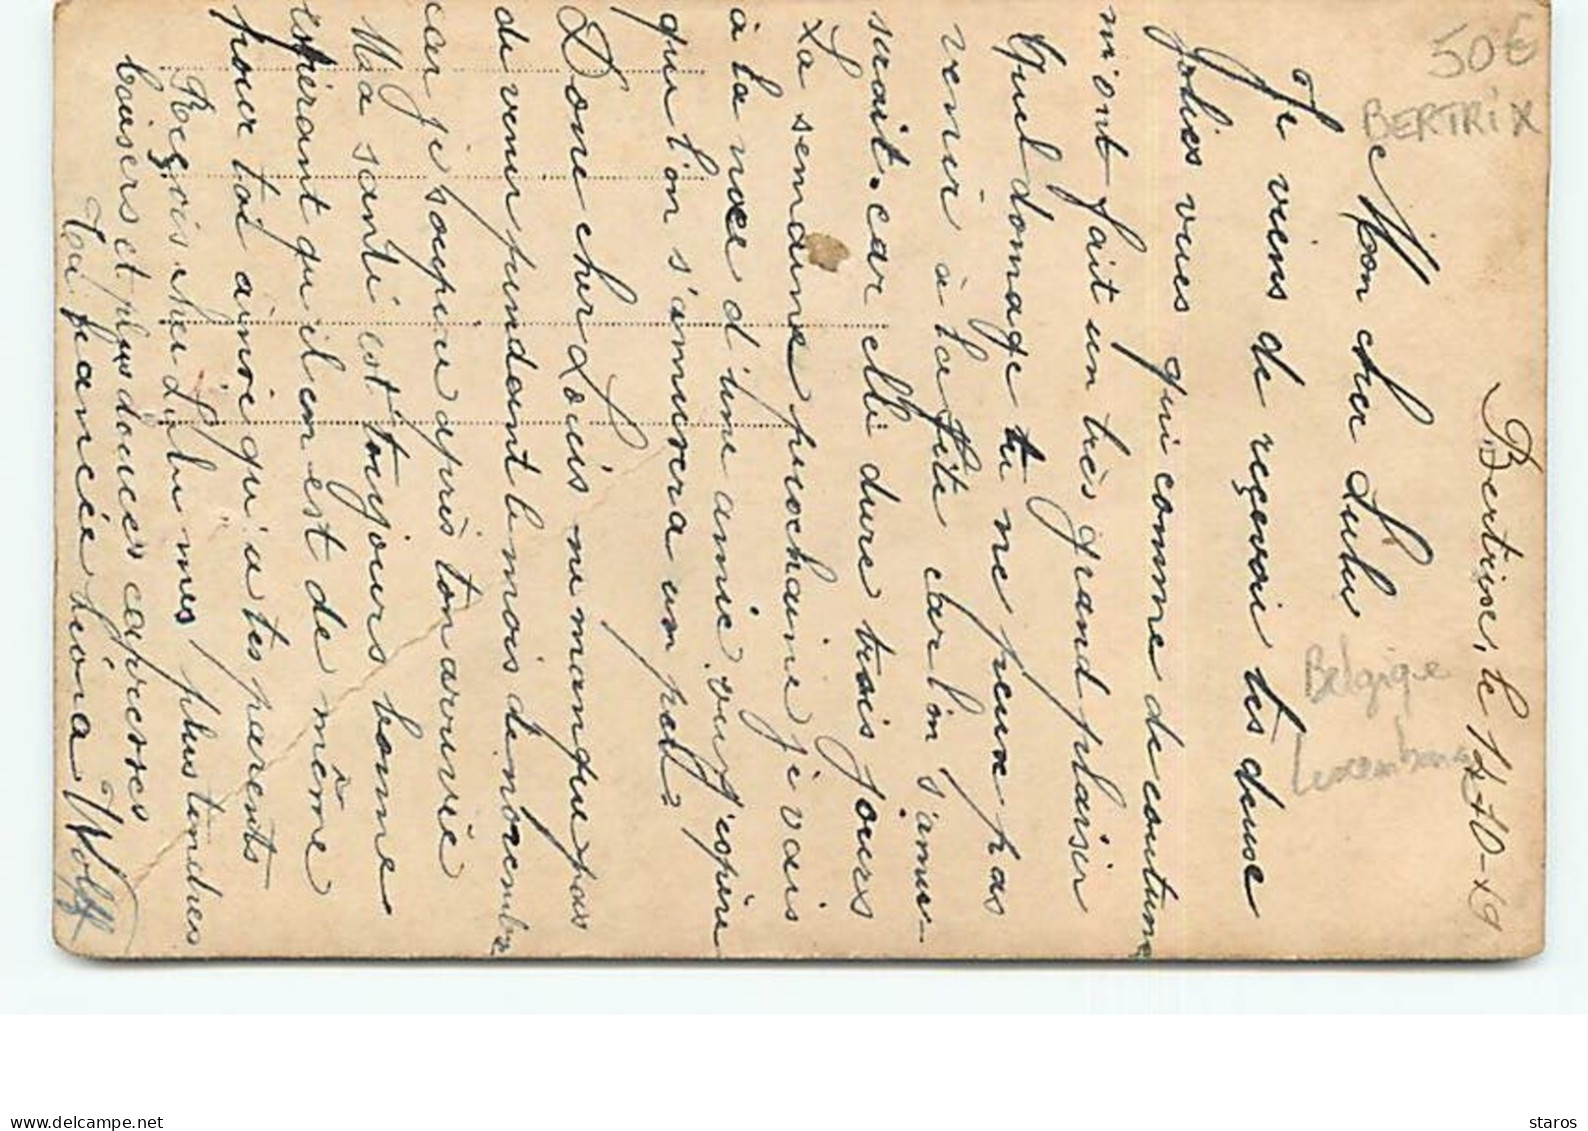 50€
BERTRIX
Belgique
Luxembourg
Bertrix, le 14-10-19
Mon cher Lulu
Je viens de reçevoir tes deuxe
jolies vues qui comme de coutume
m'ont fait un très grand plaisir
Quel domage tu ne peux pas
venir à la fête car l'on s'amu-
serait. car elle dure trois jours
La semaine prochaine je vais
à la noce d'une amie, ou j'espère
que l'on s'amusera un peu.
Donc cher Louis ne manque pas
de venir pendant le mois de novembre
car je soupire après ton arrivée
Ma santé est toujours bonne
espérant qu'il en est de même
pour toi ainsie qu'a tes parents
Reçois cher Lulu mes plus tendres
baisers et plus douces caresses
Ta fiancée Léona Wolff
staros - delcampe.net